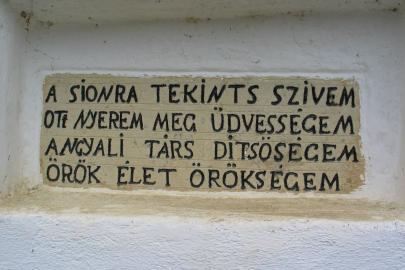 A SIONRA TEKINTS SZIVEM
OTT NYEREM MEG ÜDVESSÉGEM
ANGYALI TÁRS DITSÖSÉGEM
ÖRÖK ÉLET ÖRÖKSÉGEM